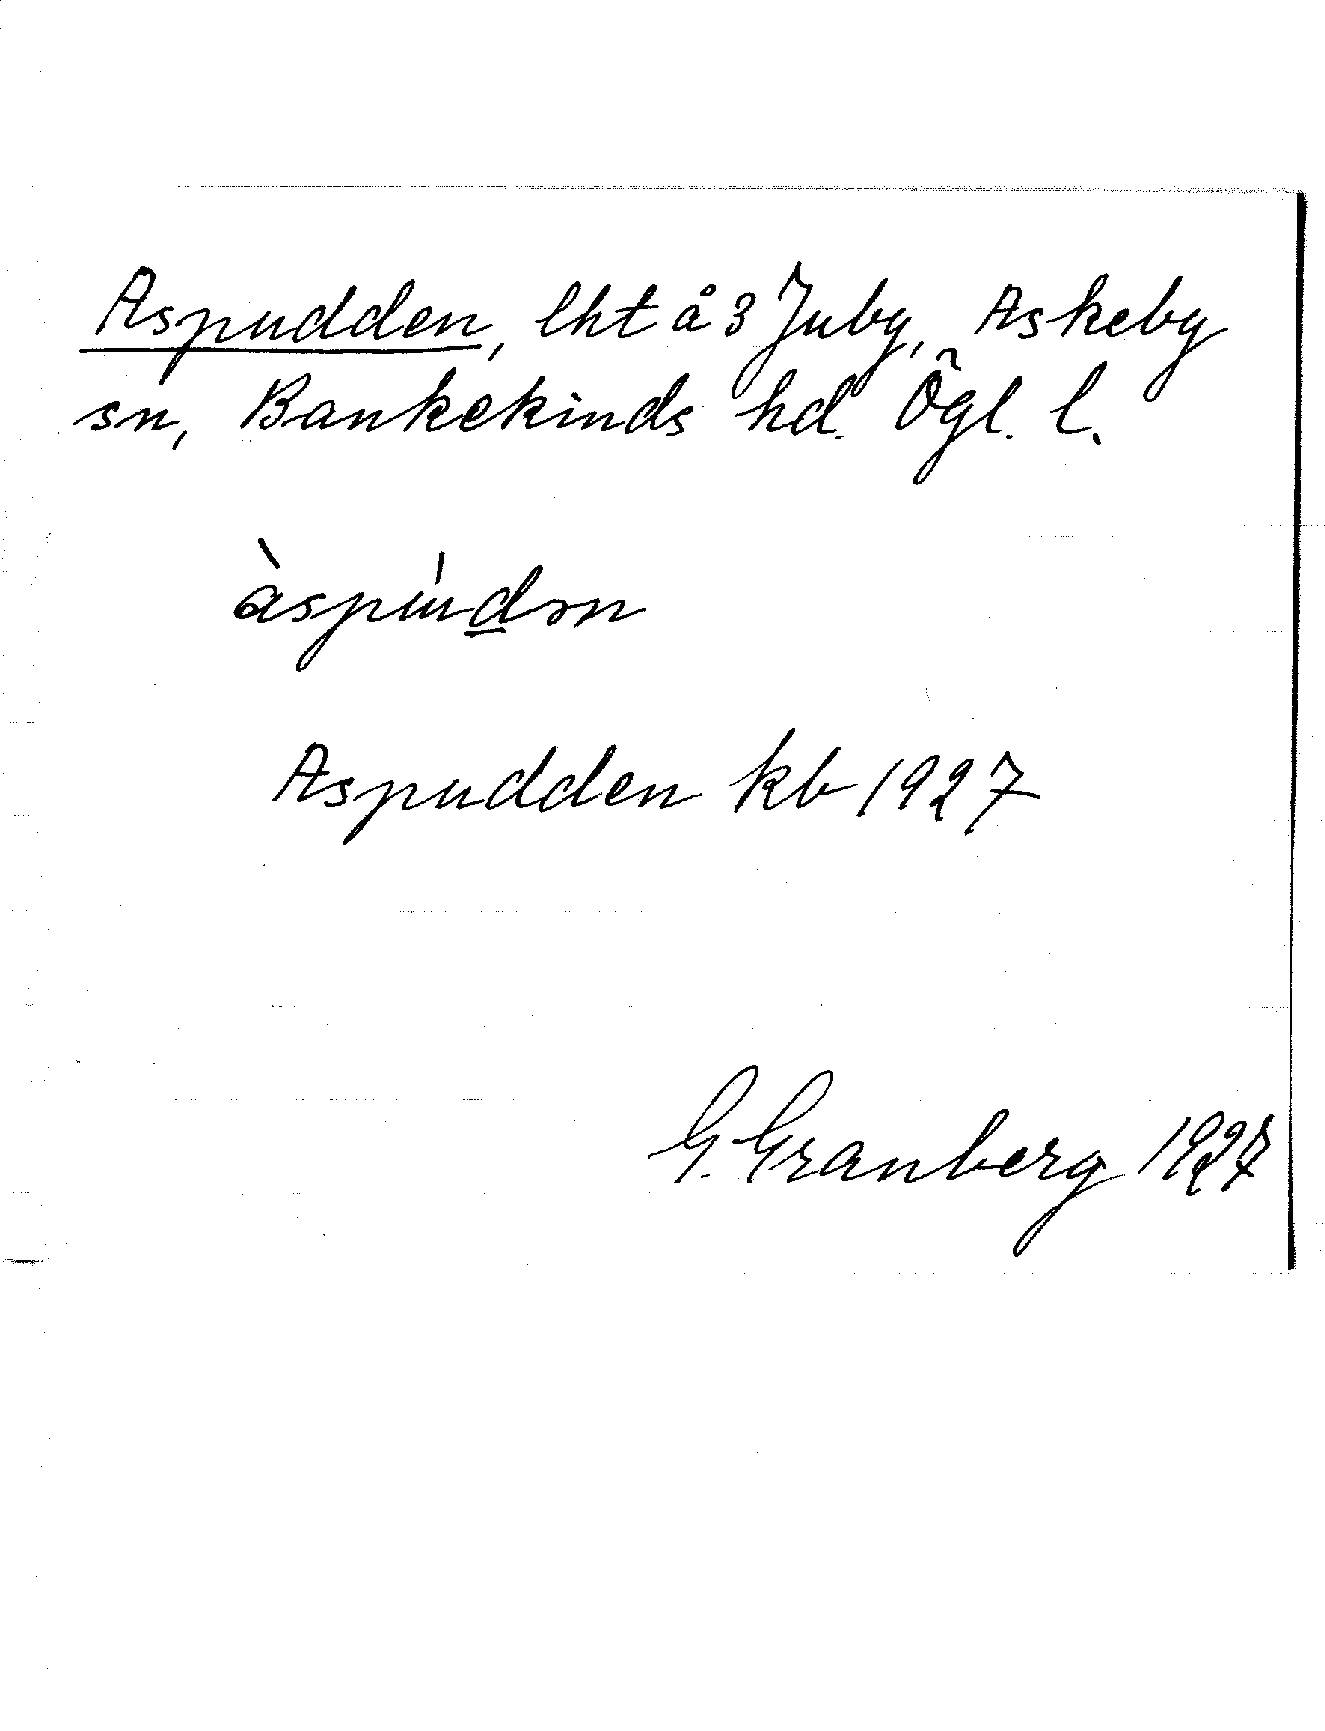 Aspudden, lht å 3 Juby, Askeby
sn, Bankekinds hd. Ögl. l.
àspúdən
Aspudden kb 1927
G. Granberg 1927